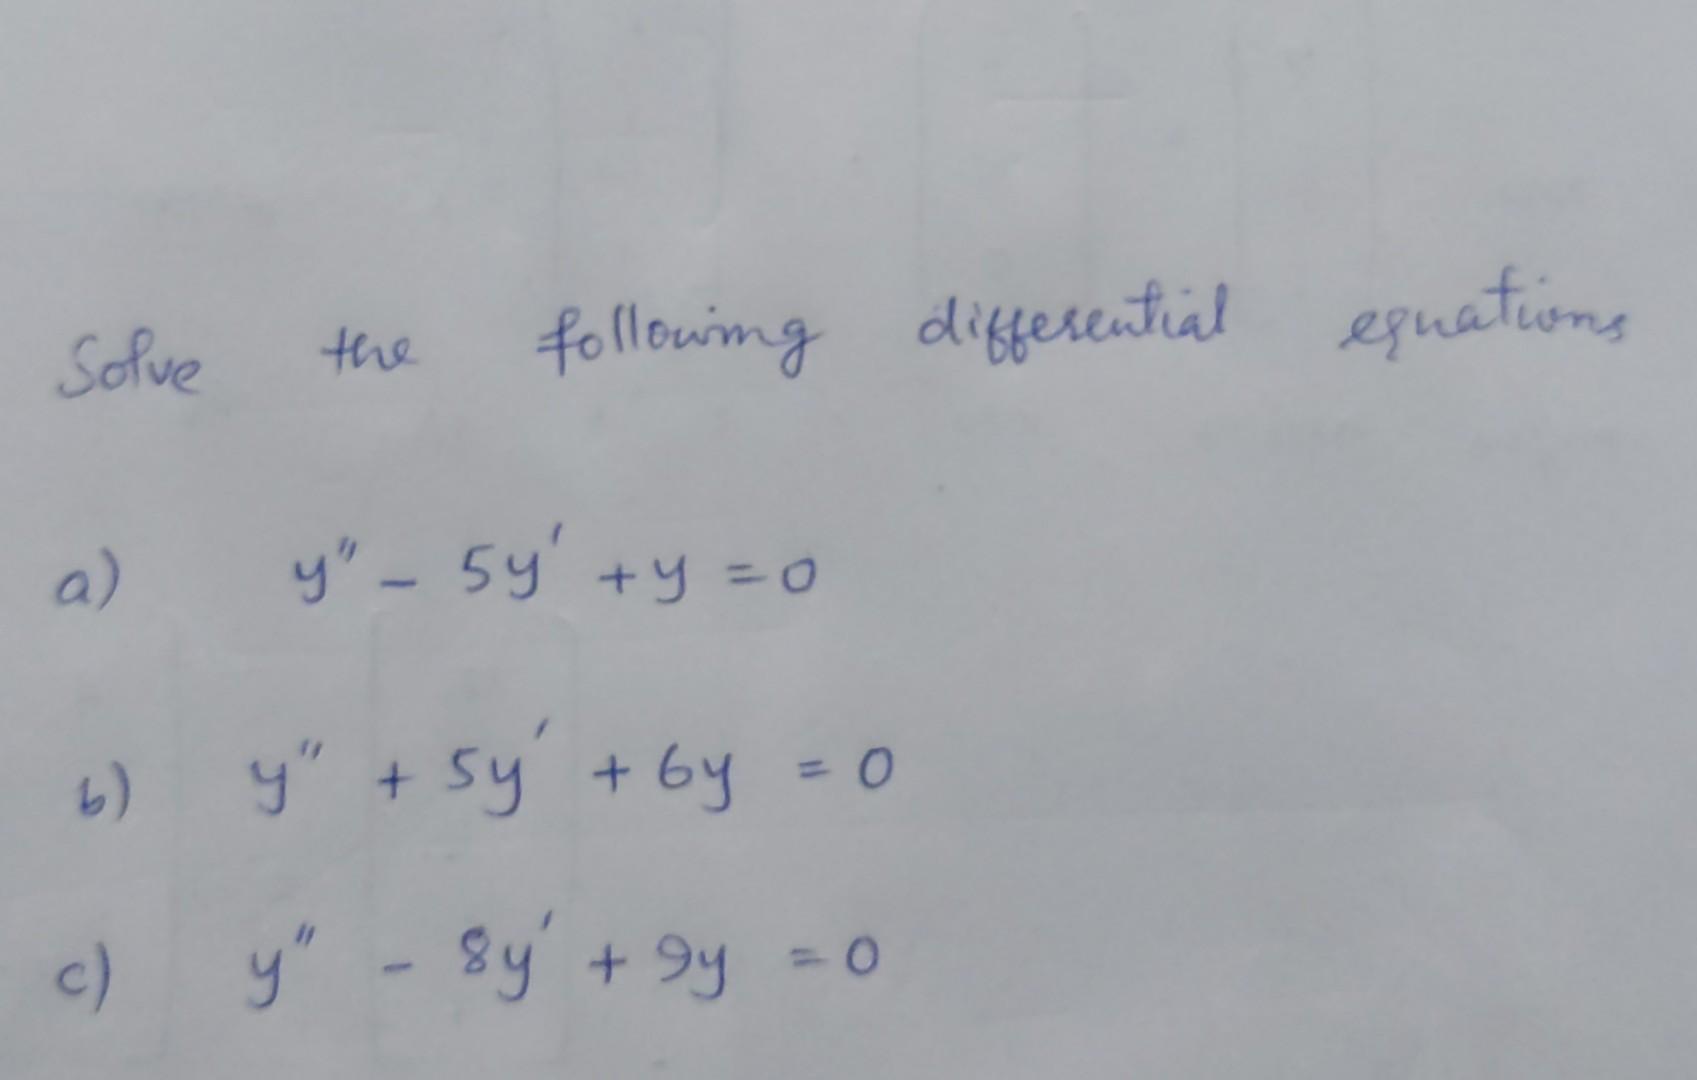 Solve the following differential equations
a) y" - 5y' + y = 0
b) y" + 5y' + 6y = 0
c) y" - 8y' + 9y = 0